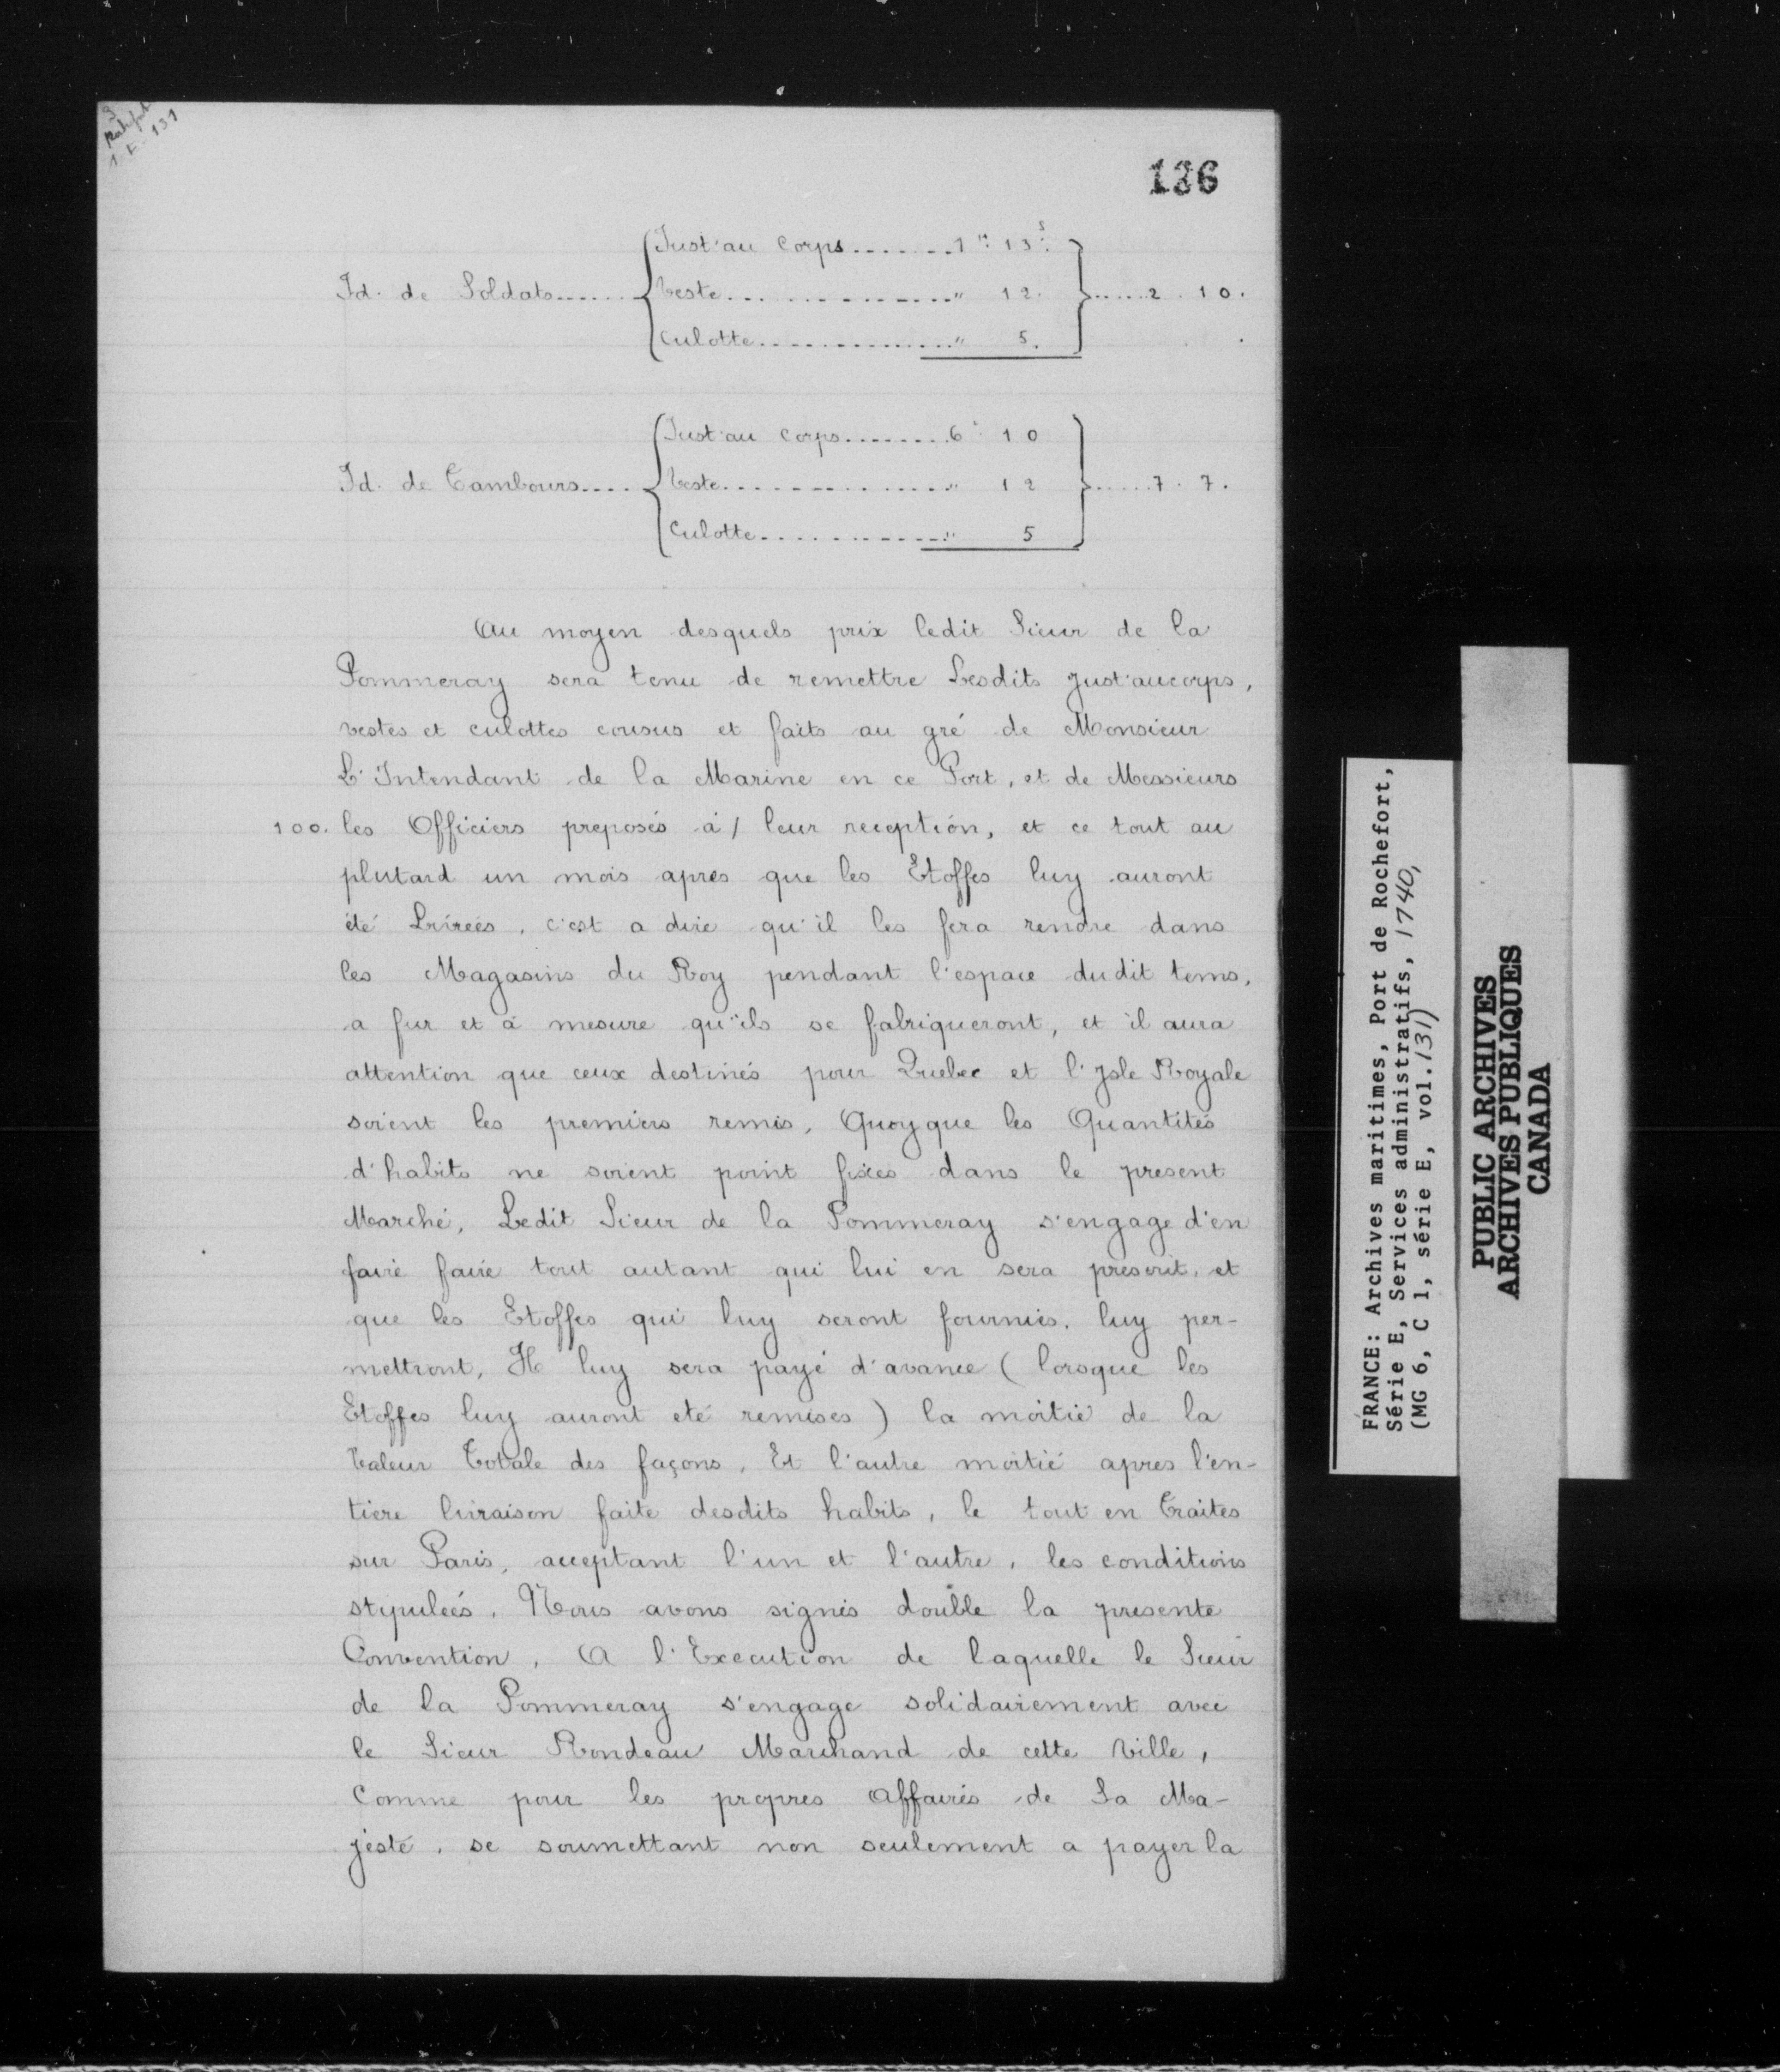 3
Rochefort
1. E. 131
136
Just'au Corps........1 ₶: 13 s:
Id. de Soldats......Veste................" 12. ......2. 10.
Culotte................" 5.
Just'au Corps.........6: 10
Id. de Tambours....Veste................" 12 ......7. 7.
Culotte................" 5
Au moyen desquels prix ledit Sieur de la
Pommeray sera tenu de remettre Lesdits just'aucorps,
vestes et culottes cousus et faits au gré de Monsieur
L'Intendant de la Marine en ce Port, et de Messieurs
100. les Officiers preposés à / leur reception, et ce tout au
plutard un mois apres que les Etoffes luy auront
été Livrées, c'est a dire qu'il les fera rendre dans
les Magasins du Roy pendant l'espace dudit tems,
a fur et à mesure qu'ils se fabriqueront, et il aura
attention que ceux destinés pour Quebec et l'Isle Royale
soient les premiers remis, Quoyque les Quantités
d'habits ne soient point fixées dans le present
Marché, Ledit Sieur de la Pommeray s'engage d'en
faire faire tout autant qui lui en sera prescrit, et
que les Etoffes qui luy seront fournies, luy per-
mettront, Il luy sera payé d'avance ( lorsque les
Etoffes luy auront eté remises ) la moitié de la
Valeur Totale des façons, Et l'autre moitié apres l'en-
tiere livraison faite desdits habits, le tout en Traites
sur Paris, acceptant l'un et l'autre, les conditions
stipulées, Nous avons signés double la presente
Convention, A l'Execution de laquelle le Sieur
de la Pommeray s'engage solidairement avec
le Sieur Rondeau Marchand de cette Ville,
Comme pour les propres Affaires de Sa Ma-
jesté, se soumettant non seulement a payer la
FRANCE: Archives maritimes, Port de Rochefort,
Série E, Services administratifs, 1740,
(MG 6, C 1, série E, vol. 131)
PUBLIC ARCHIVES
ARCHIVES PUBLIQUES
CANADA